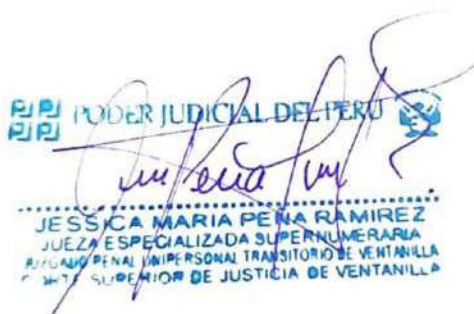 PJ PODER JUDICIAL DEL PERÚ
JESSICA MARIA PEÑA RAMIREZ
JUEZA ESPECIALIZADA SUPERNUMERARIA
JUZGADO PENAL UNIPERSONAL TRANSITORIO DE VENTANILLA
CORTE SUPERIOR DE JUSTICIA DE VENTANILLA